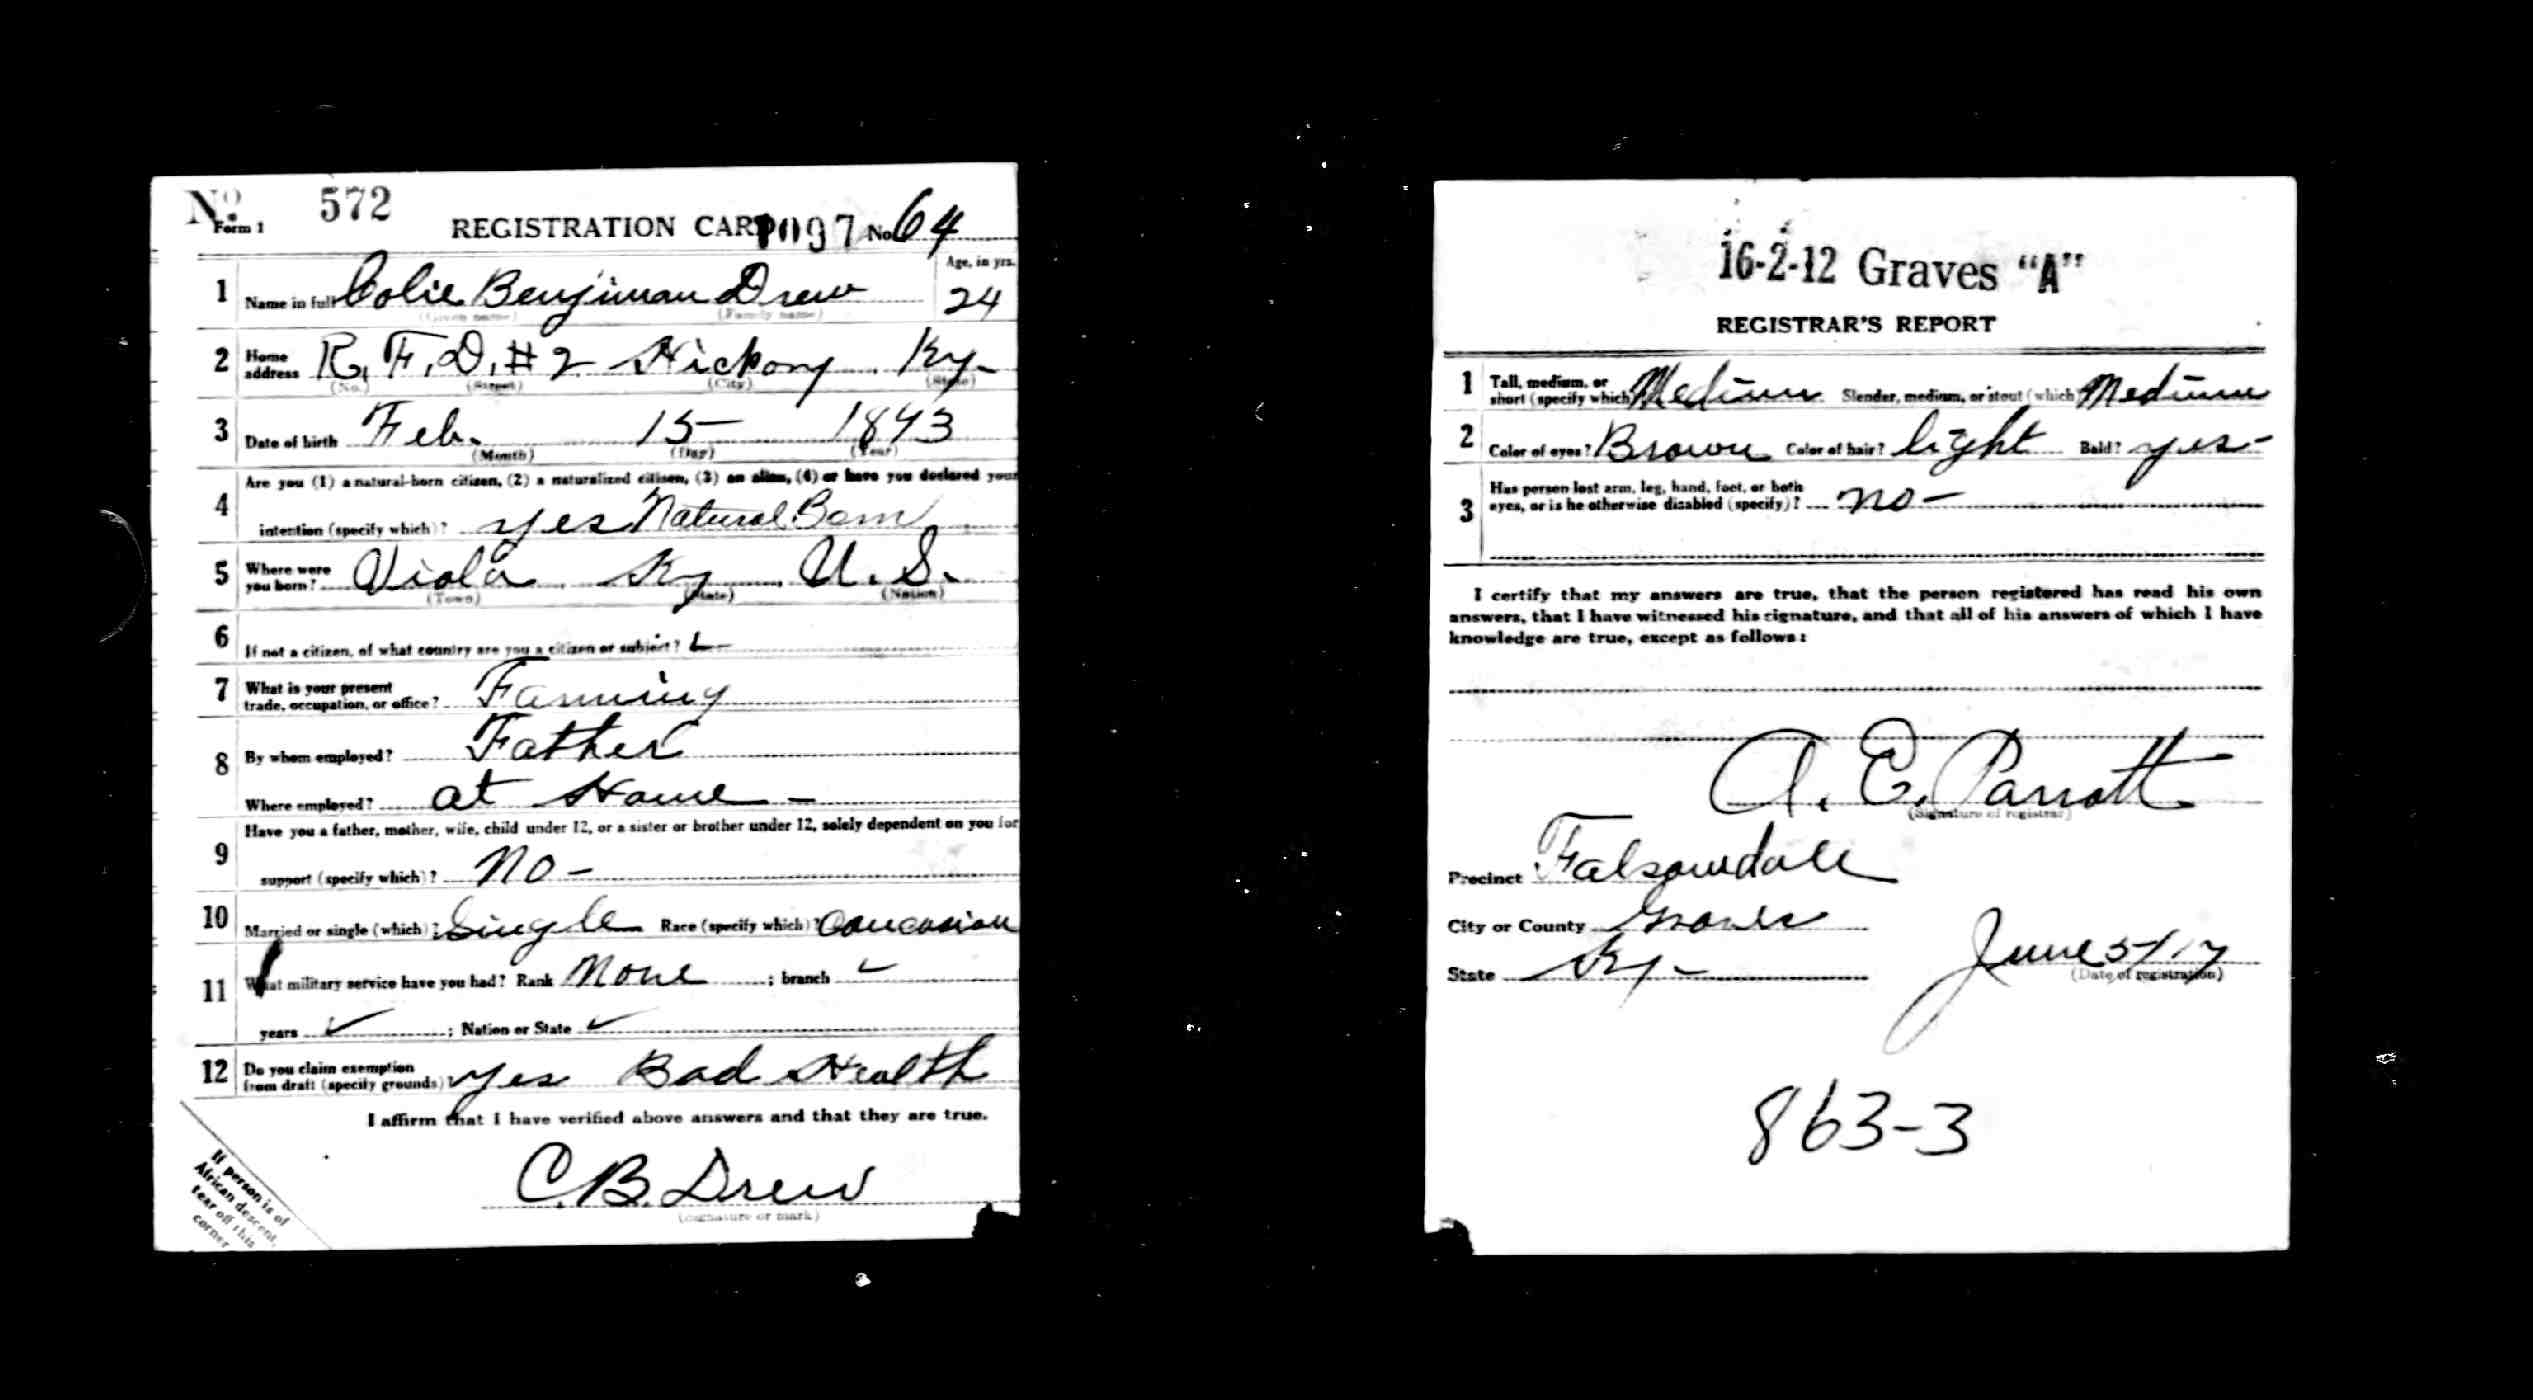 No. 572
Form 1 REGISTRATION CARD 1097 No. 64
1 Name in full Colie Benjiman Drew Age, in yrs. 24
(Given name) (Family name)
2 Home address R.F.D. #2 Hickory Ky-
(No.) (Street) (City) (State)
3 Date of birth Feb. 15- 1893
(Month) (Day) (Year)
4 Are you (1) a natural-born citizen, (2) a naturalized citizen, (3) an alien, (4) or have you declared your
intention (specify which)? yes Natural Born
5 Where were you born? Viola Ky U.S.
(Town) (State) (Nation)
6 If not a citizen, of what country are you a citizen or subject?
7 What is your present trade, occupation, or office? Farming
8 By whom employed? Father
Where employed? at Home -
9 Have you a father, mother, wife, child under 12, or a sister or brother under 12, solely dependent on you for
support (specify which)? No -
10 Married or single (which)? Single Race (specify which)? Caucasian
11 What military service have you had? Rank None ; branch ✓
years ✓ ; Nation or State ✓
12 Do you claim exemption from draft (specify grounds)? yes Bad Health
I affirm that I have verified above answers and that they are true.
C.B. Drew
(Signature or mark)
If person is of
African descent,
tear off this
corner
16-2-12 Graves "A"
REGISTRAR'S REPORT
1 Tall, medium, or short (specify which) Medium Slender, medium, or stout (which) Medium
2 Color of eyes? Brown Color of hair? light Bald? yes-
3 Has person lost arm, leg, hand, foot, or both eyes, or is he otherwise disabled (specify)? no-
I certify that my answers are true, that the person registered has read his own
answers, that I have witnessed his signature, and that all of his answers of which I have
knowledge are true, except as follows:
A. E. Parrott
(Signature of registrar)
Precinct
City or County Graves
State Ky- June 5/17
(Date of registration)
863-3